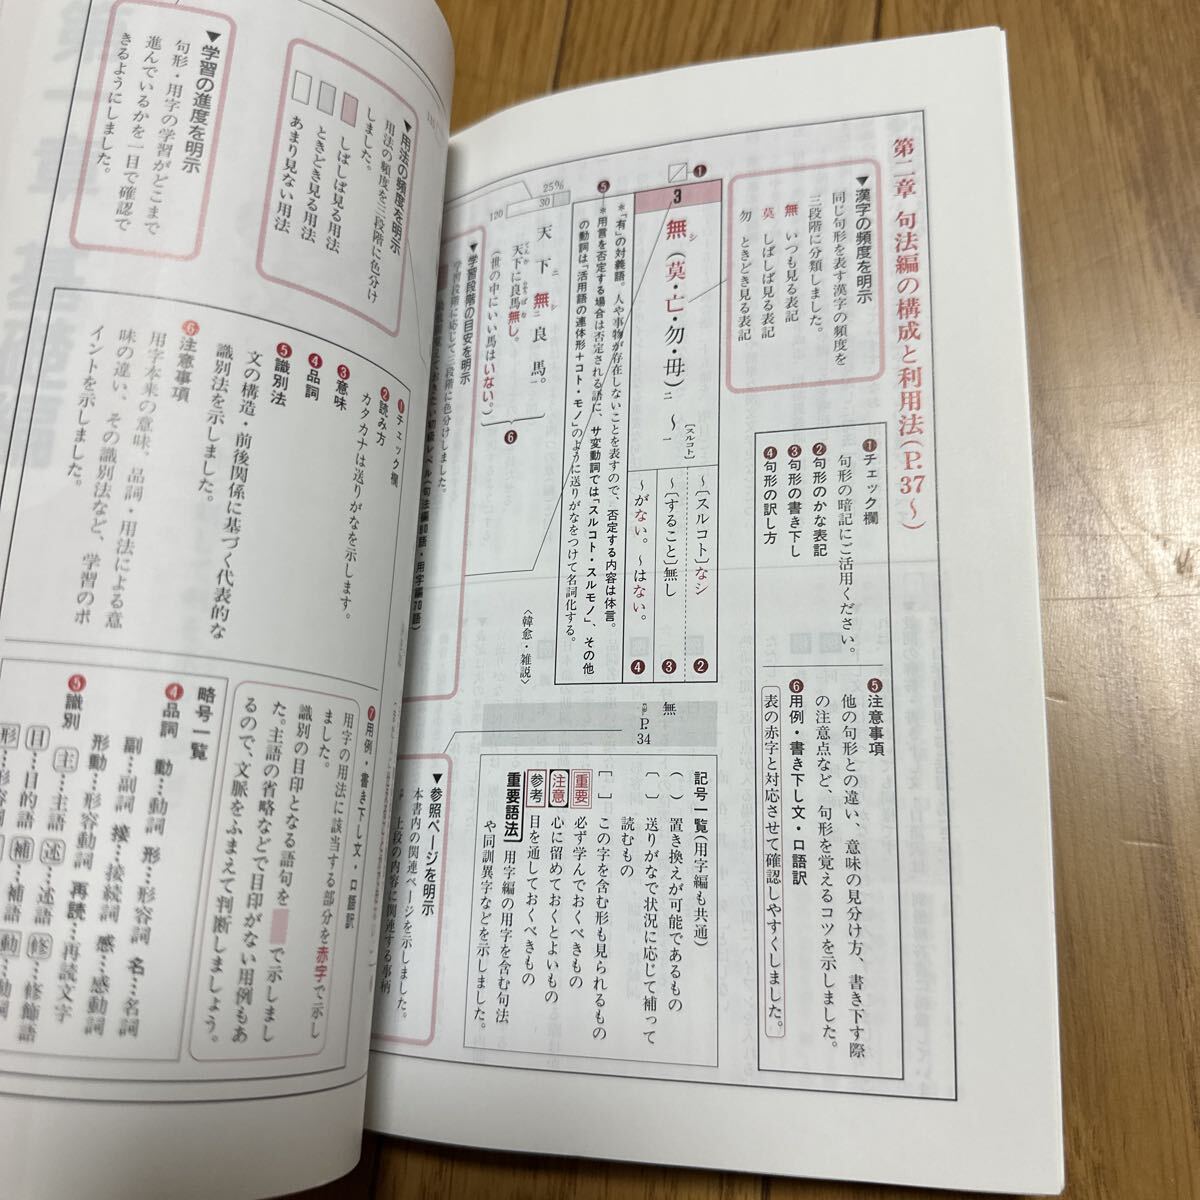 第二章 句法編の構成と利用法(P.37〜)
▼漢字の頻度を明示
同じ句形を表す漢字の頻度を
三段階に分類しました。
無 いつも見る表記
莫 しばしば見る表記
勿 ときどき見る表記
❶チェック欄
句形の暗記にご活用ください。
❷句形のかな表記
❸句形の書き下し
❹句形の訳し方
❺注意事項
他の句形との違い、意味の見分け方、書き下す際
の注意点など、句形を覚えるコツを示しました。
❻用例・書き下し文・口語訳
表の赤字と対応させて確認しやすくしました。
❶
3
無シ(莫・亡・勿・毋)二 〜一
[スルコト]
〜[スルコト]なシ ❷
〜[すること]無し ❸
〜がない。〜はない。 ❹
❺
＊「有」の対義語。人や事物が存在しないことを表すので、否定する内容は体言。
＊用言を否定する場合は否定される語に、サ変動詞では「スルコト・スルモノ」、その他
の動詞は「活用語の連体形＋コト・モノ」のように送りがなをつけて名詞化する。
25%
30
120
天下ニ無シ二良馬一。
天下に良馬無し。
(世の中にいい馬はいない。)
❻
〈韓愈・雑説〉
無
P.34
▼学習段階の目安を明示
学習段階に応じて三段階に色分けしました。
記号一覧(用字編も共通)
( ) 置き換えが可能であるもの
[ ] 送りがなで状況に応じて補って
読むもの
[ ] この字を含む形も見られるもの
重要 必ず学んでおくべきもの
注意 心に留めておくとよいもの
参考 目を通しておくべきもの
重要語法 用字編の用字を含む句法
や同訓異字などを示しました。
▼参照ページを明示
本書内の関連ページを示しました。
上段の内容に関連する事柄
▼用法の頻度を明示
用法の頻度を三段階に色分け
しました。
しばしば見る用法
ときどき見る用法
あまり見ない用法
▼学習の進度を明示
句形・用字の学習がどこまで
進んでいるかを一目で確認で
きるようにしました。
❶チェック欄
❷読み方
カタカナは送りがなを示します。
❸意味
❹品詞
❺識別法
文の構造・前後関係に基づく代表的な
識別法を示しました。
❻注意事項
用字本来の意味、品詞・用法による意
味の違い、その識別法など、学習のポ
イントを示しました。
❼用例・書き下し文・口語訳
用字の用法に該当する部分を赤字で示し
ました。
識別の目印となる語句を で示しまし
た。主語の省略などで目印がない用例もあ
るので、文脈をふまえて判断しましょう。
略号一覧
❹品詞 動…動詞 形…形容詞 名…名詞
副…副詞 接…接続詞 感…感動詞
形動…形容動詞 再読…再読文字
❺識別 主…主語 述…述語 修…修飾語
目…目的語 補…補語